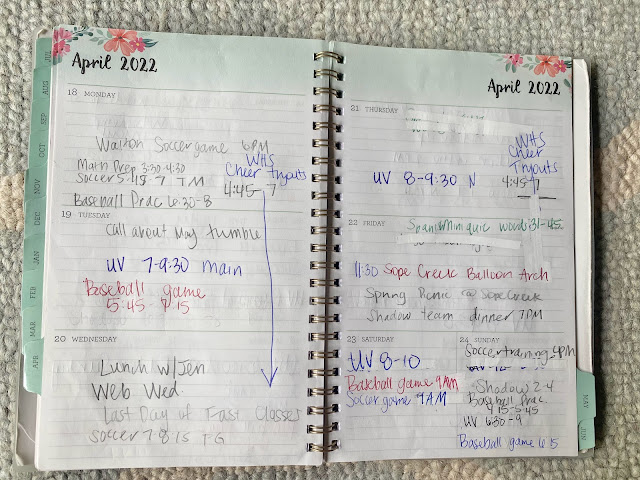 JUL
AUG
SEP
OCT
NOV
DEC
JAN
FEB
MAR
APR
April 2022
18 MONDAY
Walton Soccer game 6PM
Math Prep 3:30-4:30
Soccer 5:45-7 TM
Baseball Prac 6:30-8
WHS
Cheer Tryouts
4:45-7
19 TUESDAY
Call about May tumble
UV 7-9:30 main
Baseball game
5:45 7:15
20 WEDNESDAY
Lunch w/Jen
Web Wed.
Last Day of Fast Classes
Soccer 7-8:15 TG
April 2022
21 THURSDAY
UV 8-9:30 N
WHS
Cheer
Tryouts
4:45-7
22 FRIDAY
Span Mini quic words 31-45
11:30 Sope Creek Balloon Arch
Spring Picnic @ Sope Creek
Shadow team dinner 7PM
23 SATURDAY
UV 8-10
Baseball game 9AM
Soccer game 9AM
24 SUNDAY
Soccer training 4PM
Shadow 2-4
Baseball Prac
4:15-5:45
UV 6:30-9
Baseball game 6:15
MAY
JUN